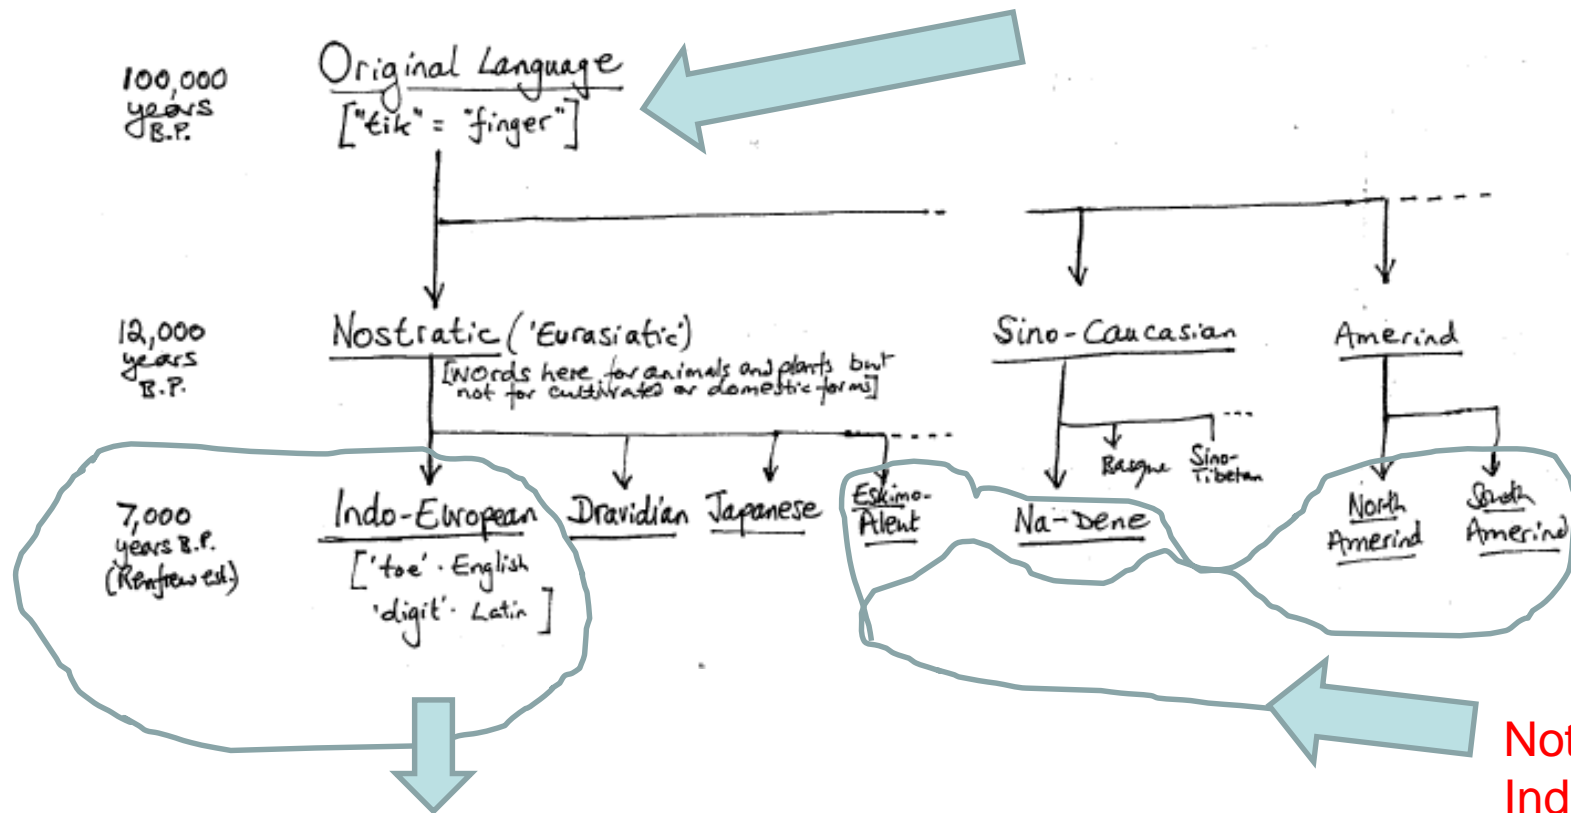 100,000
years
B.P.
Original Language
["tik" = "finger"]
12,000
years
B.P.
Nostratic ('Eurasiatic')
[words here for animals and plants but
not for cultivated or domestic forms]
Sino-Caucasian
Amerind
Basque
Sino-
Tibetan
7,000
years B.P.
(Renfrew est.)
Indo-European
['toe' · English
'digit' · Latin ]
Dravidian
Japanese
Eskimo-
Aleut
Na-Dene
North
Amerind
South
Amerind
Not
Ind